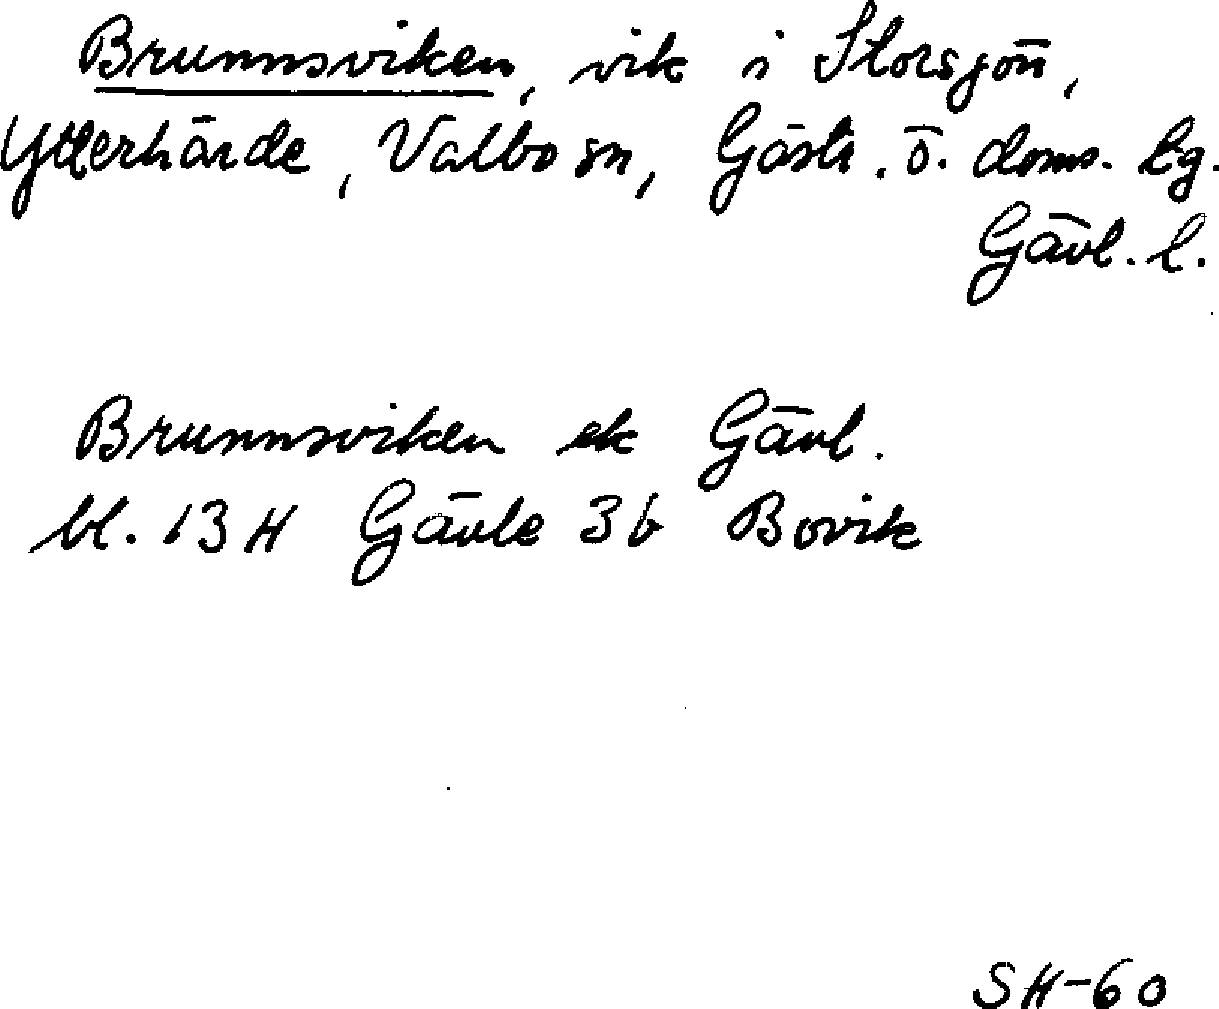 Brunnsviken, vik i Storsjön,
Ytterhärde, Valbo sn, Gästr. ö. doms. lg.
Gävl. l.
Brunnsviken ek Gävl.
bl. 13H Gävle 3b Bovik
SH-60